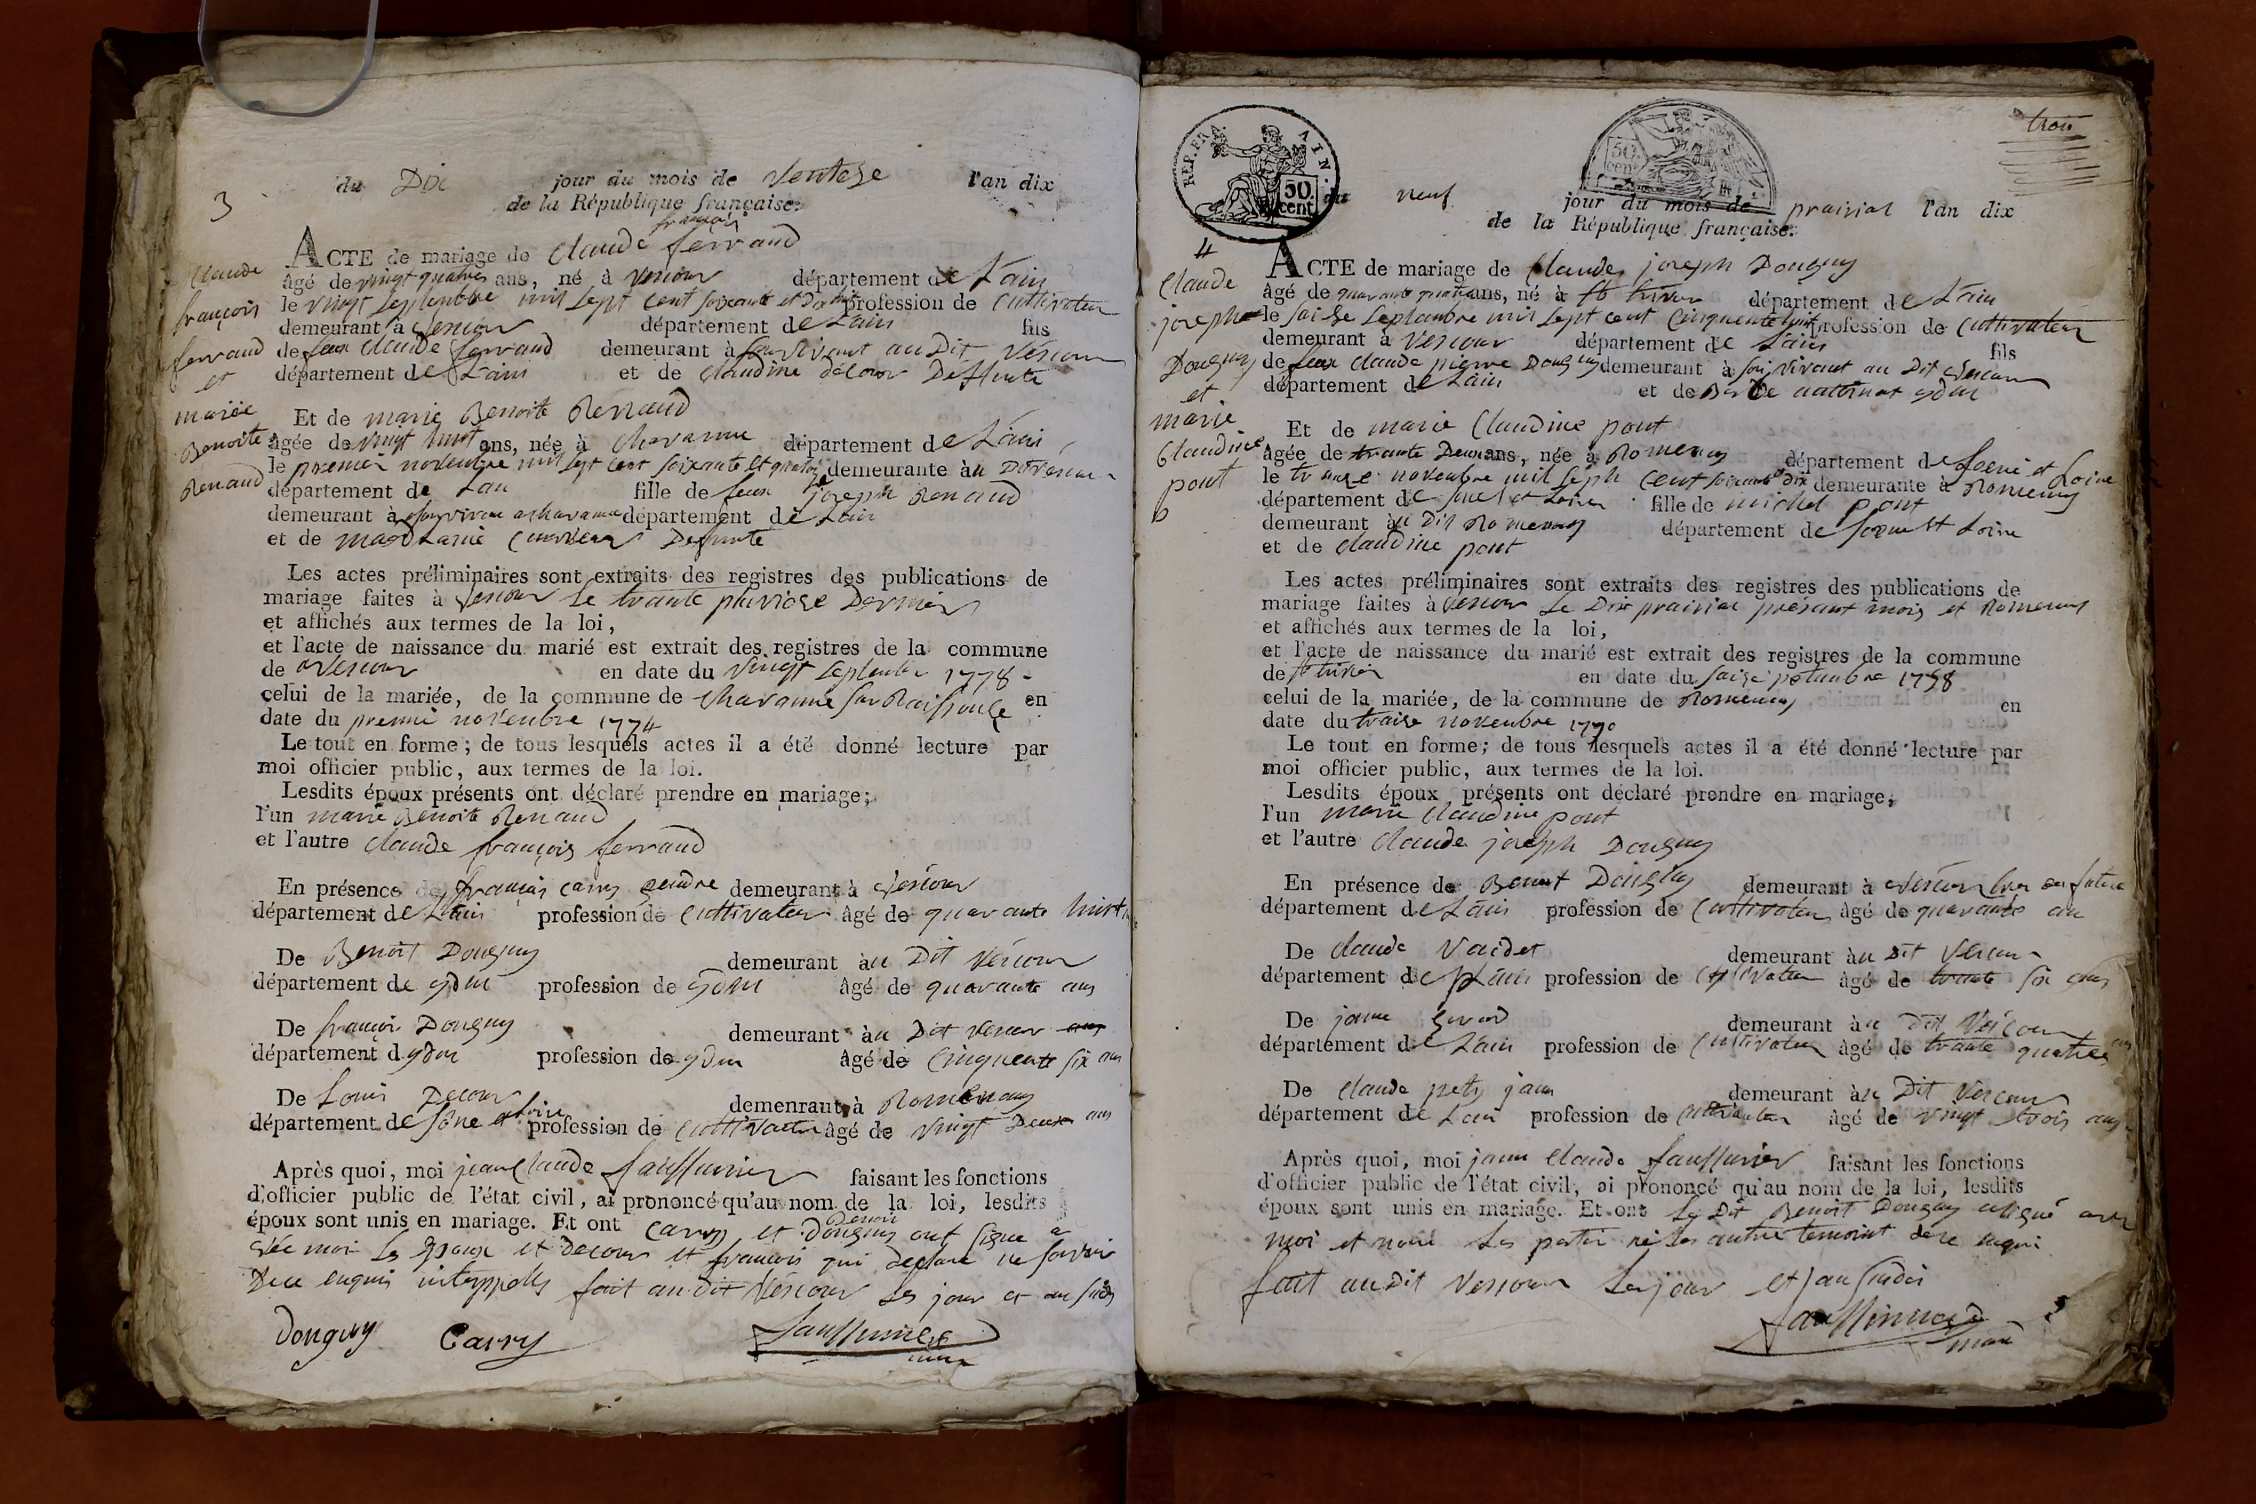 3
du Dix jour du mois de Ventose l'an dix
de la République française.
françois
ACTE de mariage de Claude ferraud
âgé de vingt quatre ans, né à Vescour département de L'ain
le vingt Septembre mil Sept Cent Soixante et Dix huit profession de Cultivateur
demeurant à Vescour département de L'ain fils
de feux Claude ferraud demeurant à Son Vivant au Dit Véscour
département de L'ain et de Claudine décour Deffunte
Claude
françois
ferraud
et
mariée
Benoite
Renaud
Et de marie Benoite Renaud
âgée de vingt huit ans, née à Chavanne département de L'ain
le premier novembre mil Sept Cent Soixante et quatorze demeurante àu Dit Vescour
département de Lain fille de feux joseph Renaud
demeurant à Son vivan a chavanne département de L'ain
et de Deffunte
Les actes préliminaires sont extraits des registres des publications de
mariage faites à Vescour Le trante pluviose Dernier
et affichés aux termes de la loi,
et l'acte de naissance du marié est extrait des registres de la commune
de Vescour en date du Vingt Septembre 1778
celui de la mariée, de la commune de Chavanne Sur Raissouse en
date du premié novembre 1774
Le tout en forme; de tous lesquels actes il a été donné lecture par
moi officier public, aux termes de la loi.
Lesdits époux présents ont déclaré prendre en mariage;
l'un marie Benoite Renaud
et l'autre Claude françois ferraud
En présence de françois carry gendre demeurant à Véscour
département de L'ain profession de Cultivateur âgé de quarante huit
De Benoit Douguy demeurant àu Dit Véscour
département de ydem profession de ydem âgé de quarante ans
De françois Douguy demeurant àu Dit Vescour
département d ydem profession de ydem âgé de Cinquente Six ans
De Louis Decour demenrant à Romenay
département de Sône et Loire profession de Cultivateur âgé de Vingt Deux ans
Après quoi, moi jean Claude Saussunier faisant les fonctions
d'officier public de l'état civil, ai prononcé qu'au nom de la loi, lesdits
époux sont unis en mariage. Et ont Carry et Benoit Douguy ont Signé a
véc moi Les Epoux et Decour et françois qui Declare ne Savoir
De ce enquis interppellés fait au dit Véscour Les jour et an Susdis
Douguy Carry Saussunier
maire
trois
REP. FRA. AIN.
50 cent
50 cen
du neuf jour du mois de prairial l'an dix
de la République française.
4
Claude
joseph
Douguy
et
marie
Claudine
pont
ACTE de mariage de Claude joseph Douguy
âgé de quarante quatre ans, né à St trivier département de L'ain
le Saize Septembre mil Sept cent Cinquente huit profession de Cultivateur
demeurant à Véscour département de L'ain fils
de feux Claude pierre Douguy demeurant à Son Vivant au Dit Vescour
département de L'ain et de ydem
Et de marie Claudine pont
âgée de trante Deux ans, née à Romenay département de Sone et Loire
le traize novembre mil Seph Cent Soixante Dix demeurante à Romenay
département de Sone et Loire fille de michel pont
demeurant àu Dit Romenay département de Sone et Loire
et de Claudine pont
Les actes préliminaires sont extraits des registres des publications de
mariage faites à Véscour Le Dix prairial présant mois et Romenay
et affichés aux termes de la loi,
et l'acte de naissance du marié est extrait des registres de la commune
de St trivier en date du Saize 1758
celui de la mariée, de la commune de Romenay en
date du traise novembre 1770
Le tout en forme; de tous lesquels actes il a été donné lecture par
moi officier public, aux termes de la loi.
Lesdits époux présents ont déclaré prendre en mariage,
l'un marie Claudine pont
et l'autre Claude joseph Douguy
En présence de Benoit Douguy demeurant à Véscour
département de L'ain profession de Cultivateur âgé de quarante an
De Claude Vaidet demeurant àu Dit Vescour
département de L'ain profession de Cultivateur âgé de trante Six ans
De jame demeurant àu Dit Véscour
département de L'ain profession de Cultivateur âgé de trante quatre ans
De Claude demeurant àu Dit Vescour
département de Lain profession de Cultivateur âgé de Vingt trois ans
Après quoi, moi Claude Saussunier faisant les fonctions
d'officier public de l'état civil, ai prononcé qu'au nom de la loi, lesdits
époux sont unis en mariage. Et ont Le Dit Benoit Douguy a signé avec
moi et Les partie ni Les autre temoint de ce enqui
fait au dit Vescour Les jour et an Susdis
Saussunier
maire